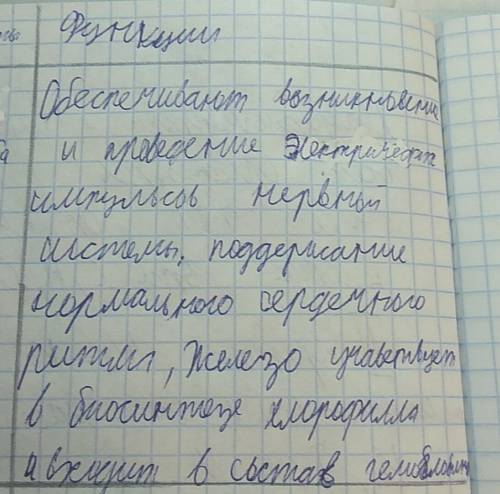 Функции
Обеспечивают возникновение
и проведение электрических
импульсов нервной
системы, поддержание
нормального сердечного
ритма, Железо участвует
в биосинтезе хлорофилла
и входит в состав гемоглобина